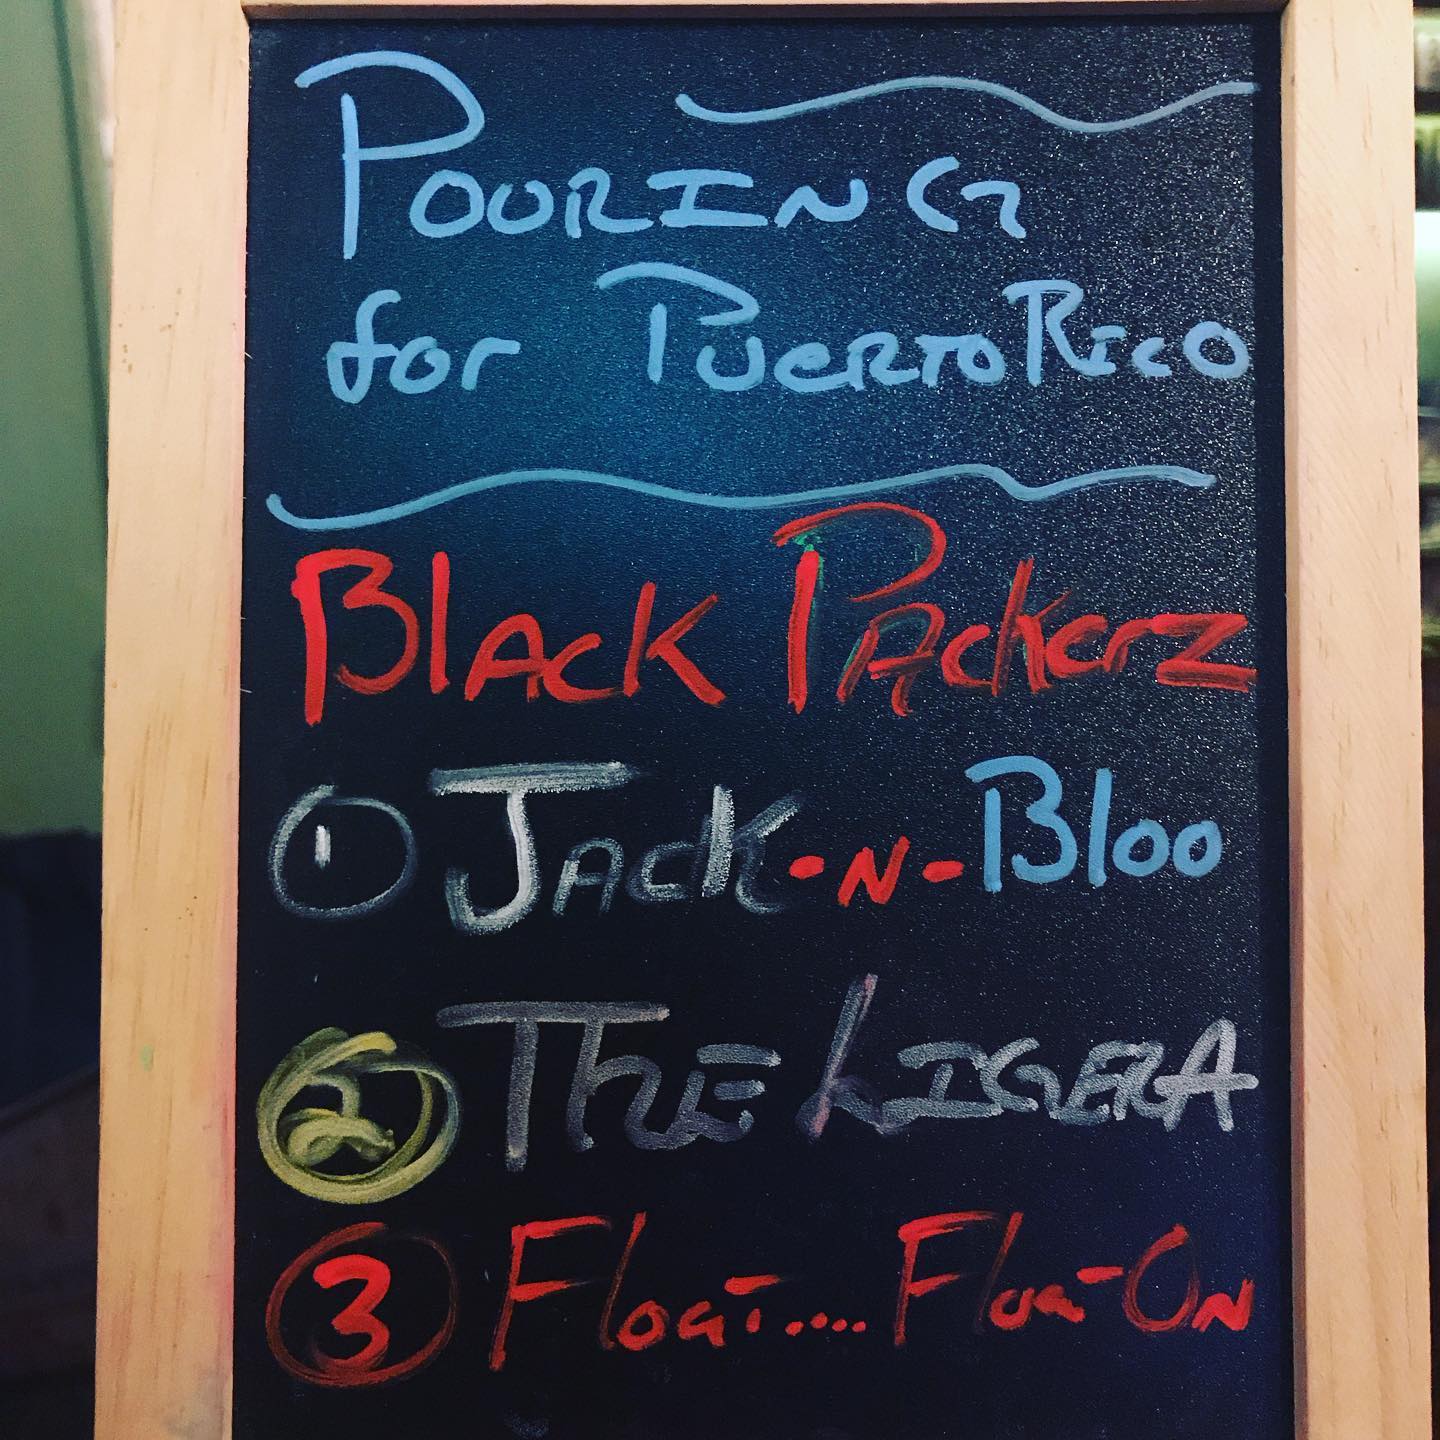 POURING
for PuerTo RicO
Black PAckerz
1 JAck-N-Bloo
2 THE LIGERA
3 Float.... Float On